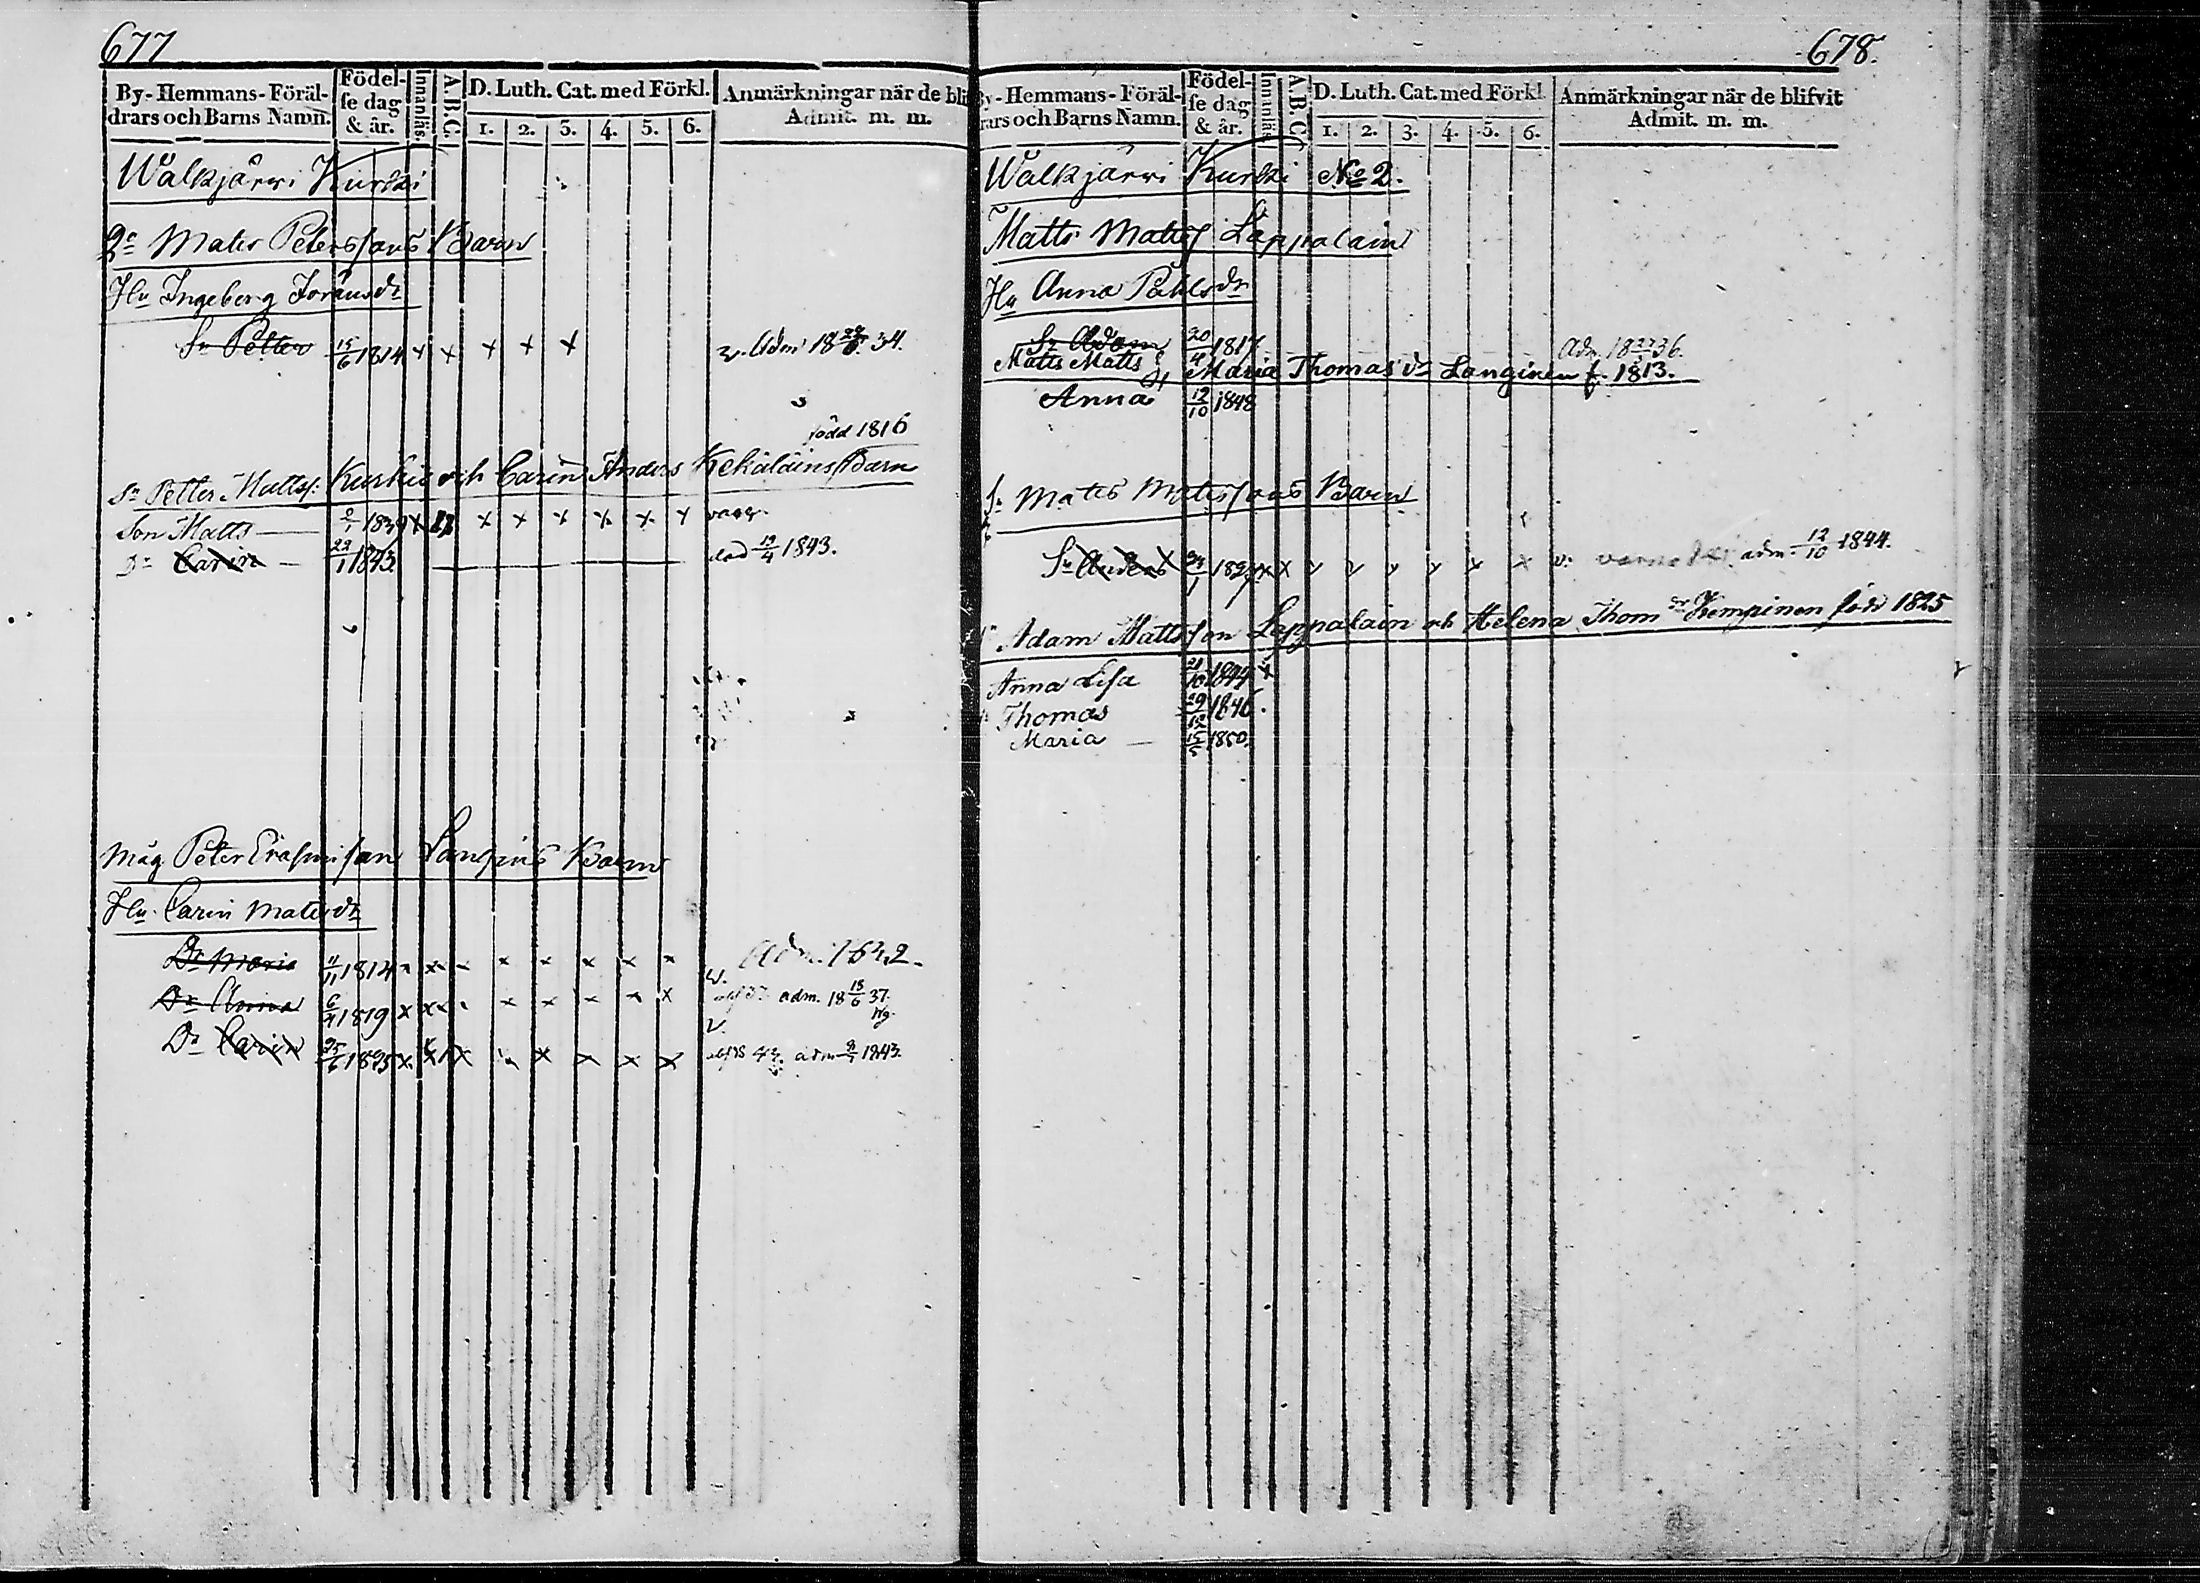 677
By- Hemmans- Föräl-
drars och Barns Namn.
Födel-
se dag
& år.
Innanläs.
A.B.C.
D. Luth. Cat. med Förkl.
1. 2. 3. 4. 5. 6.
Anmärkningar när de bli
Admit. m. m.
Walkjärwi Kurki
Matts Peterssons Barn
Hu Ingeborg Jöransdr
Sn Petter 15/6 1814 x x x x x Adm 18 34.
född 1816
Sn Petter Mattss: Kurki och Carin Anders Kekäläins Barn
Son Matts — 1839 x x x x x x x vacc.
Dr Carin — 22/1 1843 död 19/4 1843.
Måg Peter Erasmisson Langins Barn
Hu. Carin Matsdr
Dr Maria 1814 x x x x x x x
Dr Anna 1819 x x x x x x x adm. 18 18/6 37.
Dr Carin 25/6 1825 x x x x x x x adm 1843.
678.
By- Hemmans- Föräl-
rars och Barns Namn.
Födel-
se dag
& år.
Innanläs.
A.B.C.
D. Luth. Cat. med Förkl.
1. 2. 3. 4. 5. 6.
Anmärkningar när de blifvit
Admit. m. m.
Walkjärwi Kurki No 2.
Matts Matss Lappalain
Hu Anna Påhlsdr
Sr Adam 20/4 1817 Adm. 18 36.
Matts Matts Maria Thomas dr Langinen f. 1813.
Anna 12/10 1848
Sn Mats Matssons Barn
Sn Anders 24/1 182 x x adm. 12/10 1844.
Adam Mattsson Lappalain och Helena Thom dr Kempinen född 1825
Anna Lisa 21/10 1844 x
Thomas 29/12 1846.
Maria — 15/5 1850.